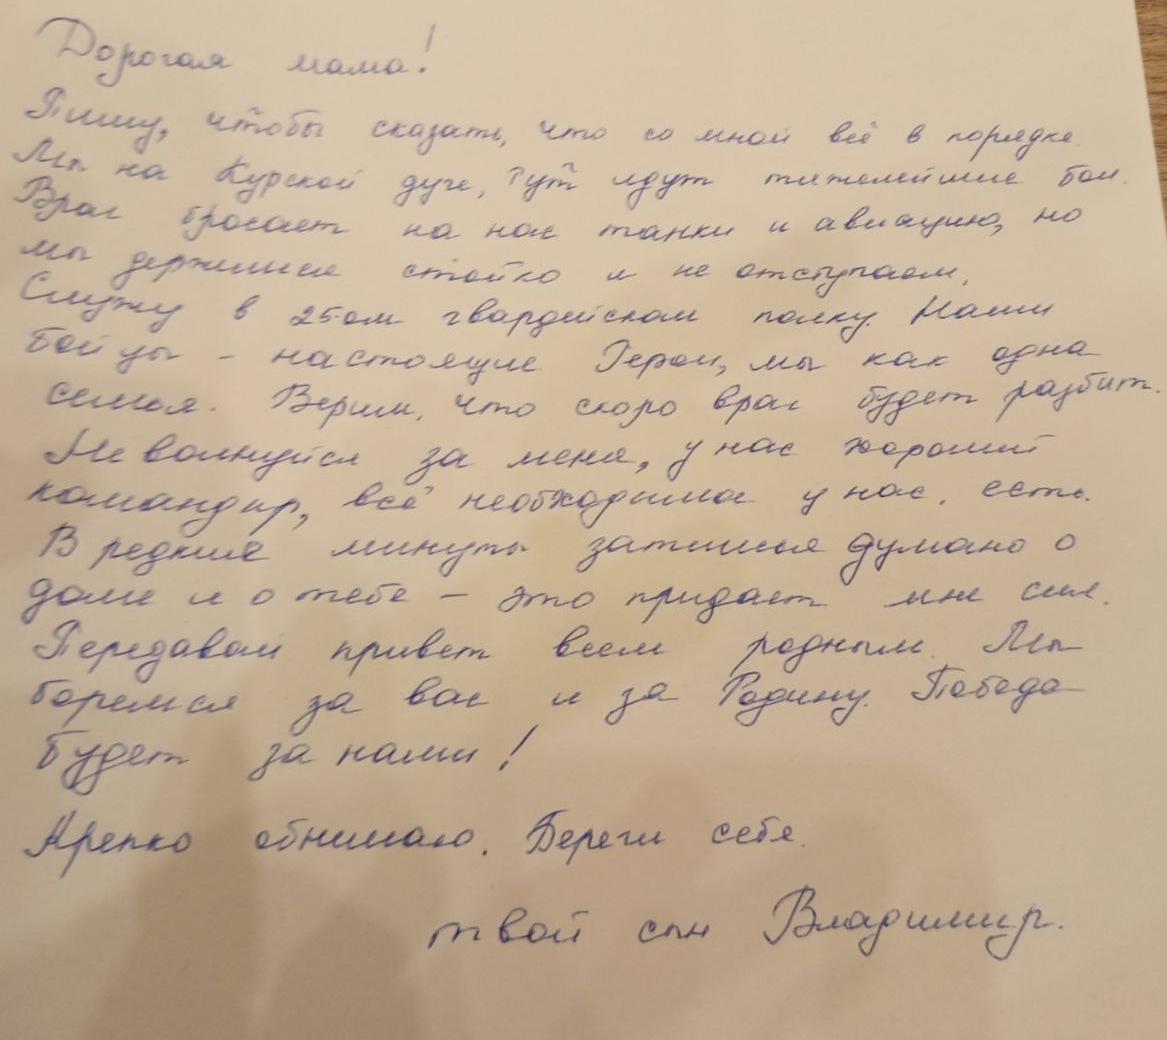 Дорогая мама!
Пишу, чтобы сказать, что со мной всё в порядке.
Мы на Курской дуге, тут идут тяжелейшие бои.
Враг бросает на нас танки и авиацию, но
мы держимся стойко и не отступаем.
Служу в 25ом гвардейском полку. Наши
бойцы - настоящие Герои, мы как одна
семья. Верим, что скоро враг будет разбит.
Не волнуйся за меня, у нас хороший
командир, всё необходимое у нас есть.
В редкие минуты затишья думаю о
доме и о тебе - это придаёт мне сил.
Передавай привет всем родным. Мы
боремся за вас и за Родину. Победа
будет за нами!
Крепко обнимаю. Береги себя.
твой сын Владимир.